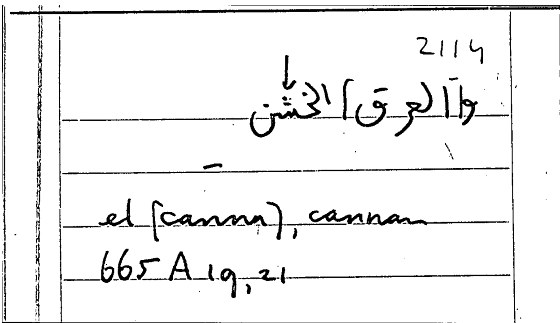 2114
وا[لعرق] الخشن
el [canna], cannam
665 A 19, 21